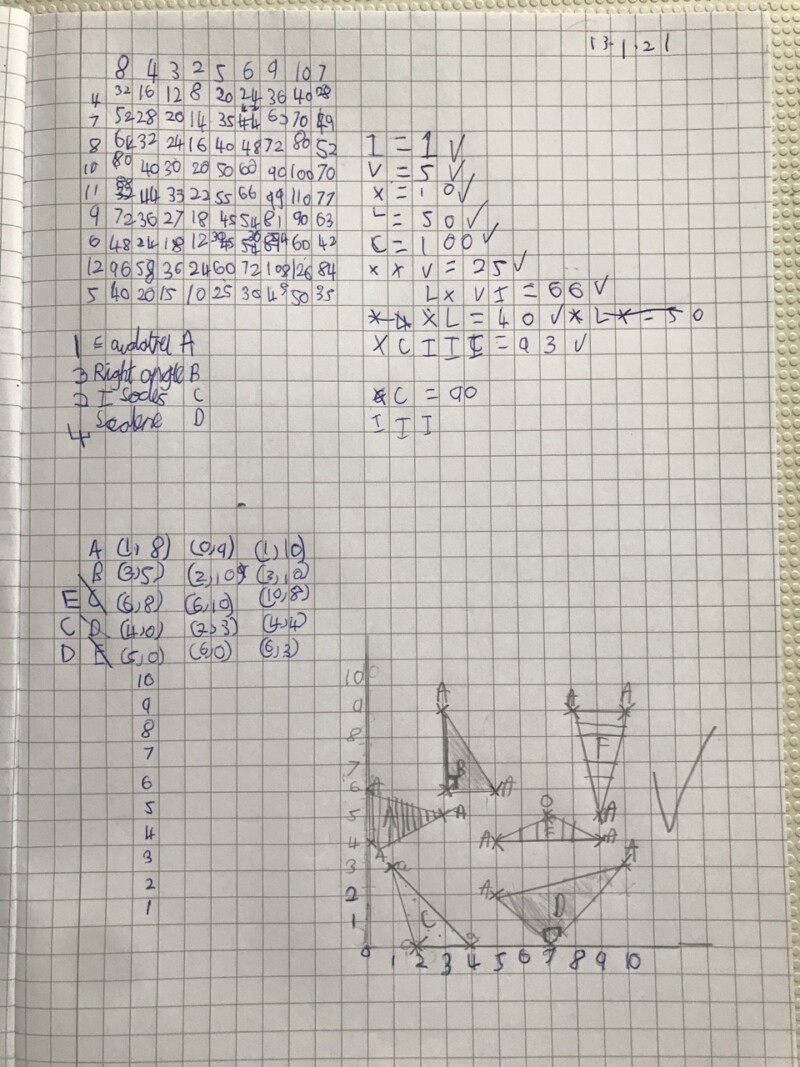 13.1.21
8 4 3 2 5 6 9 10 7
4 32 16 12 8 20 24 36 40 28
7 52 28 20 14 35 44 63 70 49
8 64 32 24 16 40 48 72 80 52
10 80 40 30 20 50 60 90 100 70
11 44 33 22 55 66 99 110 77
9 72 36 27 18 45 54 81 90 63
6 48 24 18 12 60 42
12 96 58 36 24 60 72 108 126 84
5 40 20 15 10 25 30 45 50 35
I = 1 ✓
V = 5 ✓
X = 10 ✓
L = 50 ✓
C = 100 ✓
X X V = 25 ✓
L X V I = 66 ✓
X L = 40 ✓ X L X = 50
X C I I I = 93 ✓
X C = 90
I I I
1 A
3 Right angle B
2 I Socles C
4 Scalene D
A (1, 8) (0,9) (1, 10)
B (3,5) (2,10) (3,10)
E C (6,8) (6,10) (10,8)
C D (4,0) (2,3) (4,4)
D E (5,0) (6,0) (6,3)
10
9
8
7
6
5
4
3
2
1
10
9
8
7
6
5
4
3
2
1
0 1 2 3 4 5 6 7 8 9 10
A
B
C
D
E
F